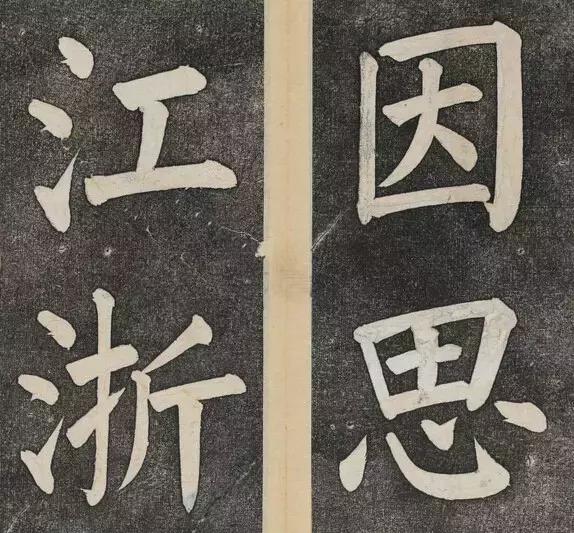 因思
江浙